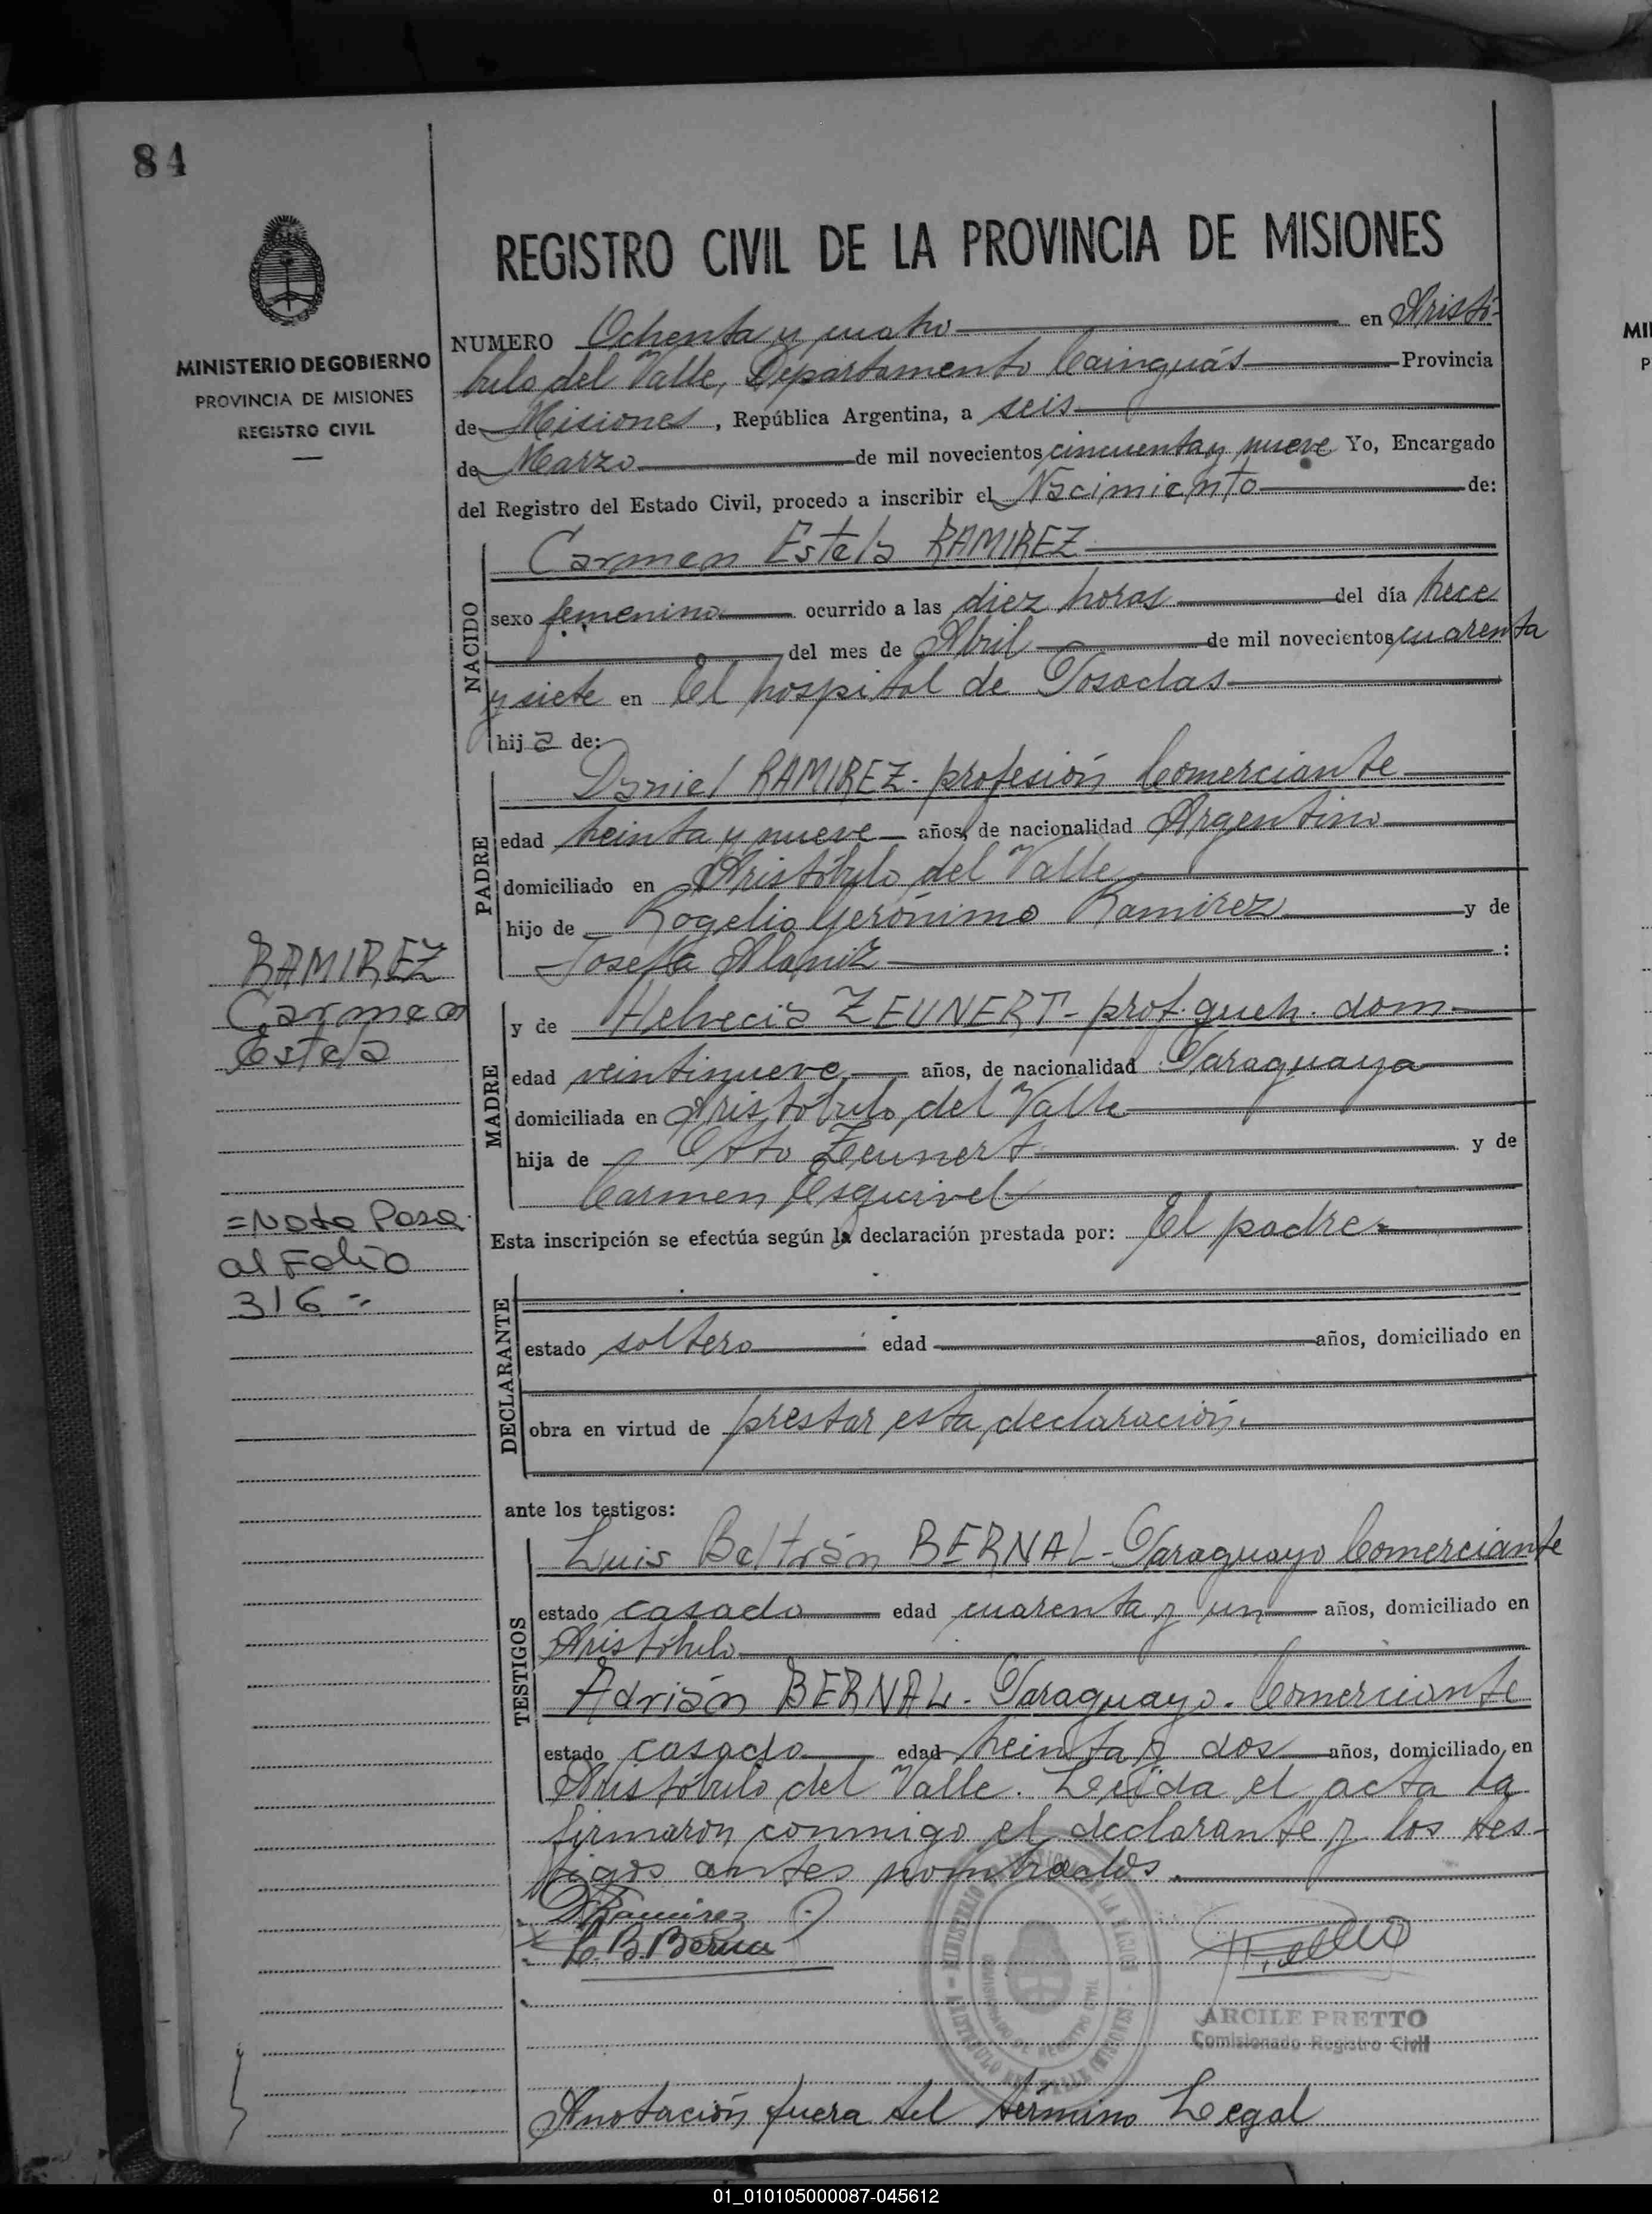 84
MINISTERIO DE GOBIERNO
PROVINCIA DE MISIONES
REGISTRO CIVIL
REGISTRO CIVIL DE LA PROVINCIA DE MISIONES
NUMERO Ochenta y cuatro en Aristó-
bulo del Valle, Departamento Cainguás Provincia
de Misiones, República Argentina, a seis
de Marzo de mil novecientos cincuenta y nueve Yo, Encargado
del Registro del Estado Civil, procedo a inscribir el Nacimiento de:
NACIDO
Carmen Estela RAMIREZ
sexo femenino ocurrido a las diez horas del día trece
del mes de Abril de mil novecientos cuarenta
y siete en El hospital de Posadas
hija de:
PADRE
Daniel RAMIREZ - profesión Comerciante
edad treinta y nueve años, de nacionalidad Argentino
domiciliado en Aristóbulo del Valle
hijo de Rogelio Gerónimo Ramirez y de
Josefa Alaniz :
MADRE
y de Helvecia ZEUNERT - prof. queh. dom.
edad veintinueve años, de nacionalidad Paraguaya
domiciliada en Aristóbulo del Valle
hija de Otto Zeunert y de
Carmen Esquivel
RAMIREZ
Carmen
Estela
=Nota Pasa
al Folio
316=
Esta inscripción se efectúa según la declaración prestada por: El padre=
DECLARANTE
estado soltero edad años, domiciliado en
obra en virtud de prestar esta declaración.
ante los testigos:
TESTIGOS
Luis Beltrán BERNAL - Paraguayo Comerciante
estado casado edad cuarenta y un años, domiciliado en
Aristóbulo
Adrián BERNAL - Paraguayo. Comerciante
estado casado edad treinta y dos años, domiciliado en
Aristóbulo del Valle. Leída el acta la
firmaron conmigo el declarante y los tes-
tigos antes nombrados.
D Ramirez
L. B. Bernal
ARCILE PRETTO
Comisionado Registro Civil
Anotación fuera del término Legal
01_010105000087-045612